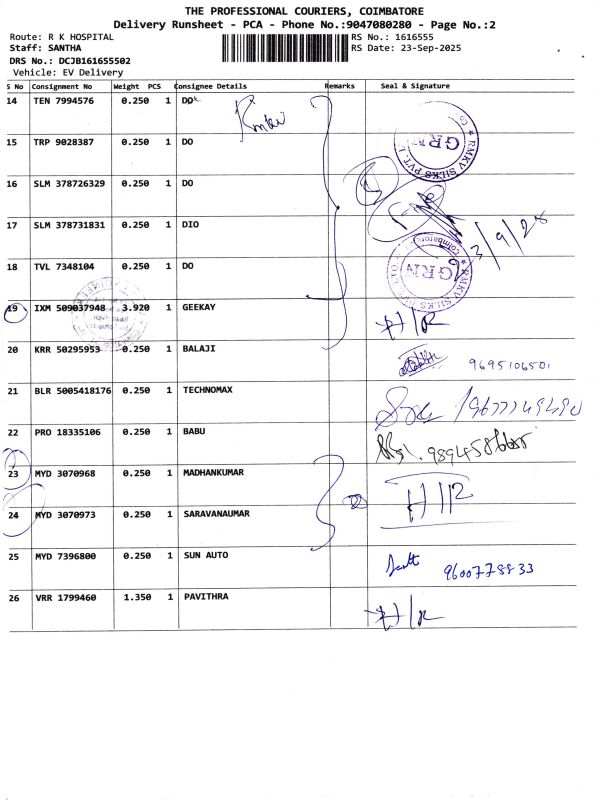 THE PROFESSIONAL COURIERS, COIMBATORE
Delivery Runsheet - PCA - Phone No.:9047080280 - Page No.:2
Route: R K HOSPITAL
RS No.: 1616555
Staff: SANTHA
RS Date: 23-Sep-2025
DRS No.: DCJB161655502
Vehicle: EV Delivery
S No Consignment No Weight PCS Consignee Details Remarks Seal & Signature
14 TEN 7994576 0.250 1 DO
Rmkv
GRN
RMKV SILKS PVT. L
15 TRP 9028387 0.250 1 DO
16 SLM 378726329 0.250 1 DO
17 SLM 378731831 0.250 1 DIO
18 TVL 7348104 0.250 1 DO
GRN
RMKV SILKS PVT
Coimbatore
19 IXM 509037948 3.920 1 GEEKAY
H/R
20 KRR 50295953 0.250 1 BALAJI
9695106501
21 BLR 5005418176 0.250 1 TECHNOMAX
22 PRO 18335106 0.250 1 BABU
23 MYD 3070968 0.250 1 MADHANKUMAR
24 MYD 3070973 0.250 1 SARAVANAUMAR
25 MYD 7396800 0.250 1 SUN AUTO
9600778833
26 VRR 1799460 1.350 1 PAVITHRA
H/R